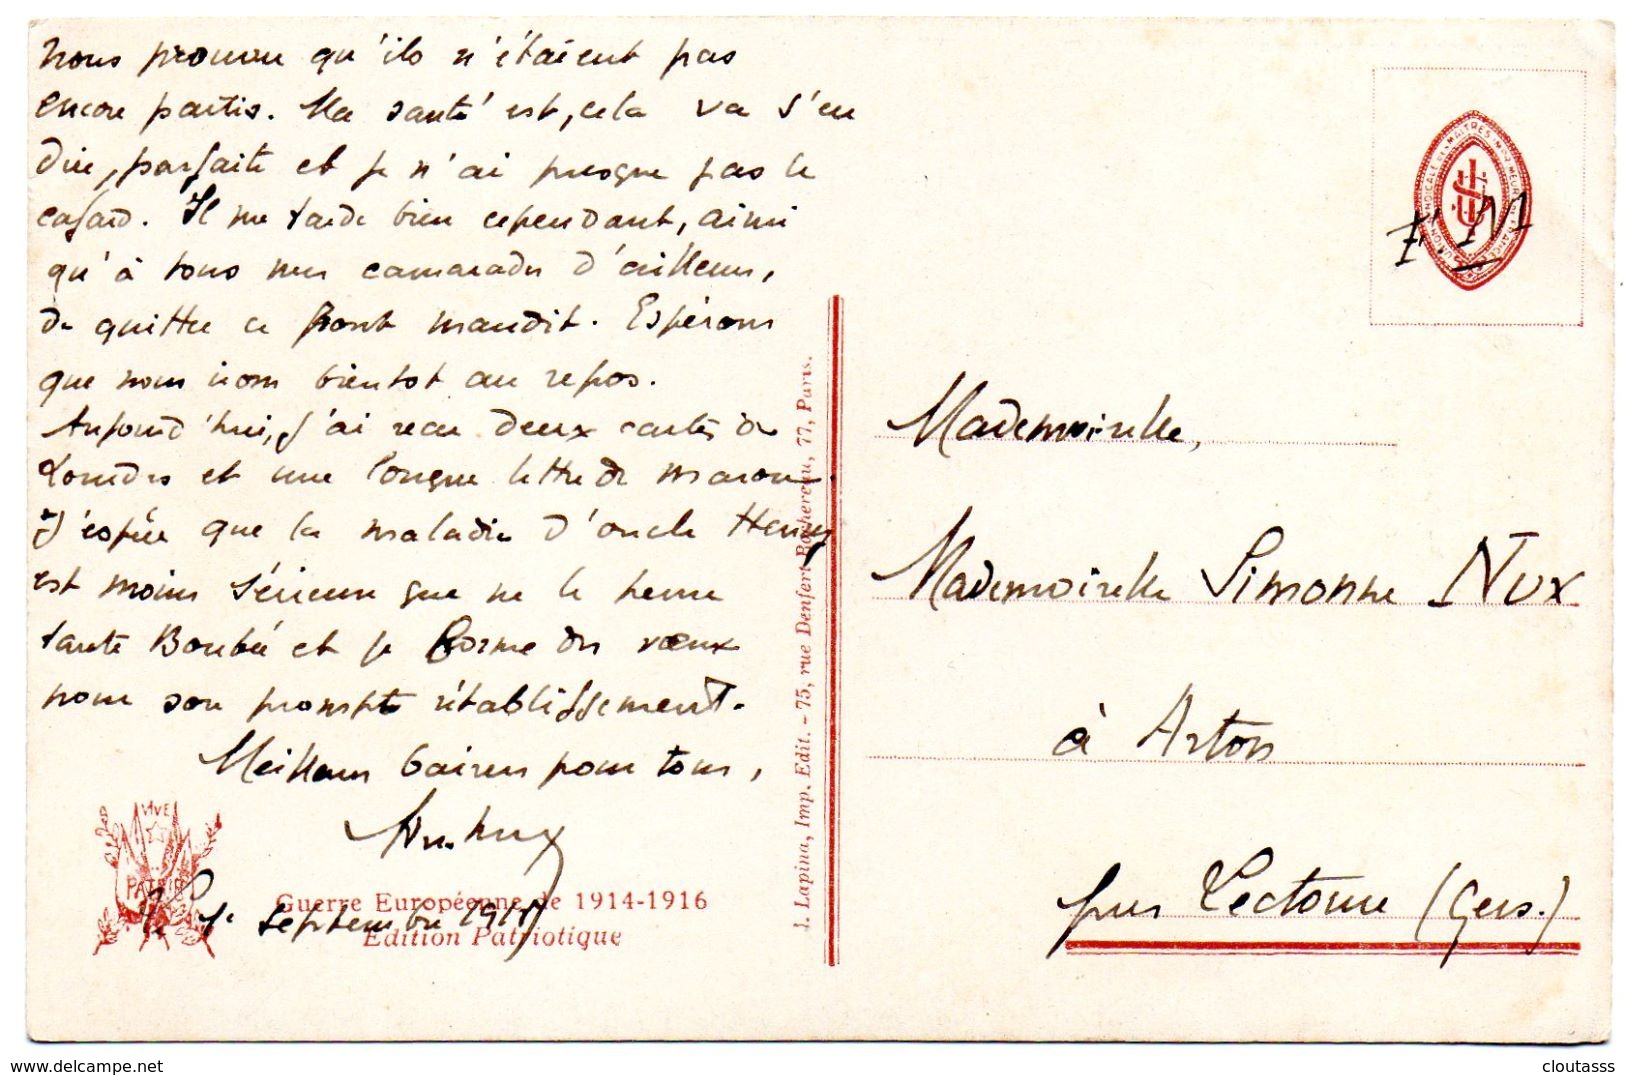 nous prouve qu'ils n'étaient pas
encore partis. Ma santé est, cela va s'en
dire, parfaite et je n'ai presque pas le
cafard. Il me tarde bien cependant, ainsi
qu'à tous mes camarades d'ailleurs,
de quitter ce front maudit. Espérons
que nous irons bientot au repos.
Aujourd'hui, j'ai reçu deux cartes de
Lourdes et une longue lettre de
J'espère que la maladie d'oncle Henry
est moins sérieuse que ne le pense
tante Boubée et je forme des vœux
pour son prompt rétablissement.
Meilleurs baisers pour tous,
VIVE
PATRIE
Guerre Européenne de 1914-1916
Edition Patriotique
1e septembre 1917
J. Lapina, Imp. Edit. - 75, rue Denfert Rochereau, 77, Paris.
UNION SYNDICALE DES MAITRES IMPRIMEURS DE FRANCE
F M
Mademoiselle,
Mademoiselle Simonne Nux
à Arton
par Lectoure (Gers.)
cartes-postales.delcampe.net
cloutasss